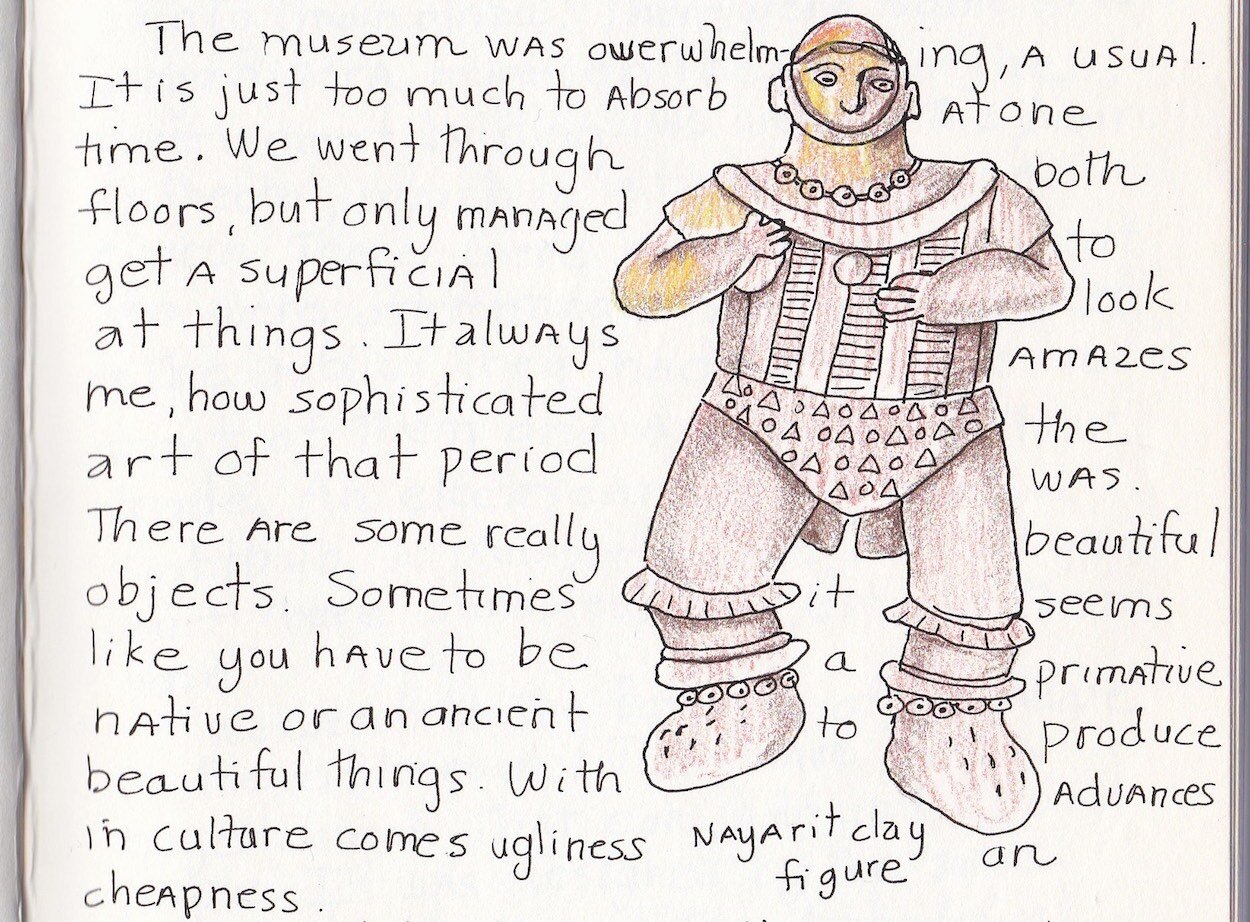 The museum was owerwhelm-ing, a usual.
It is just too much to absorb at one
time. We went through both
floors, but only managed to
get a superficial look
at things. It always amazes
me, how sophisticated the
art of that period was.
There are some really beautiful
objects. Sometimes it seems
like you have to be a primative
native or an ancient to produce
beautiful things. With advances
in culture comes ugliness an
cheapness.
Nayarit clay
figure